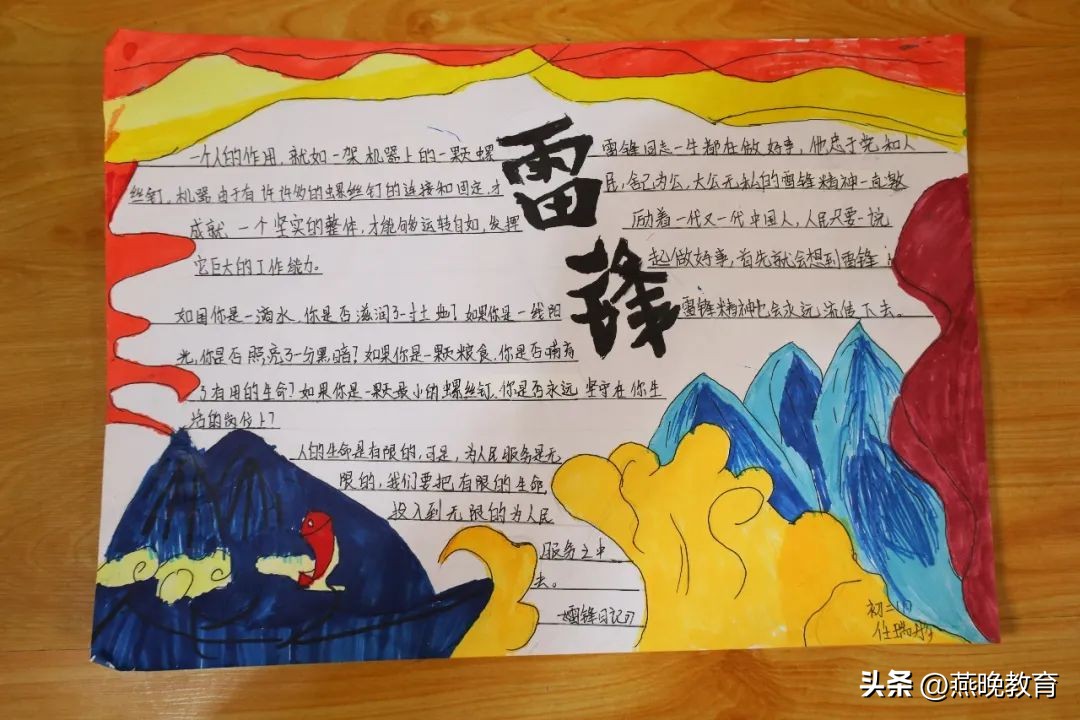 雷锋
一个人的作用，就如一架机器上的一颗螺
丝钉，机器由于有许许多的螺丝钉的连接和固定，才
成就一个坚实的整体，才能够运转自如，发挥
它巨大的工作能力。
如国你是一滴水，你是否滋润了一寸土地？如果你是一线阳
光，你是否照亮了一分黑暗？如果你是一颗粮食，你是否哺育
了有用的生命？如果你是一颗最小的螺丝钉，你是否永远坚守在你生
活的岗位上？
人的生命是有限的，可是，为人民服务是无
限的，我们要把有限的生命
投入到无限的为人民
服务之中
去。
雷锋日记
雷锋同志一生都在做好事，他忠于党和人
民，舍己为公，大公无私的雷锋精神一直激
励着一代又一代中国人，人民只要一说
起做好事，首先就会想到雷锋，
雷锋精神也会永远流传下去。
初二
任瑞
头条 @燕晚教育